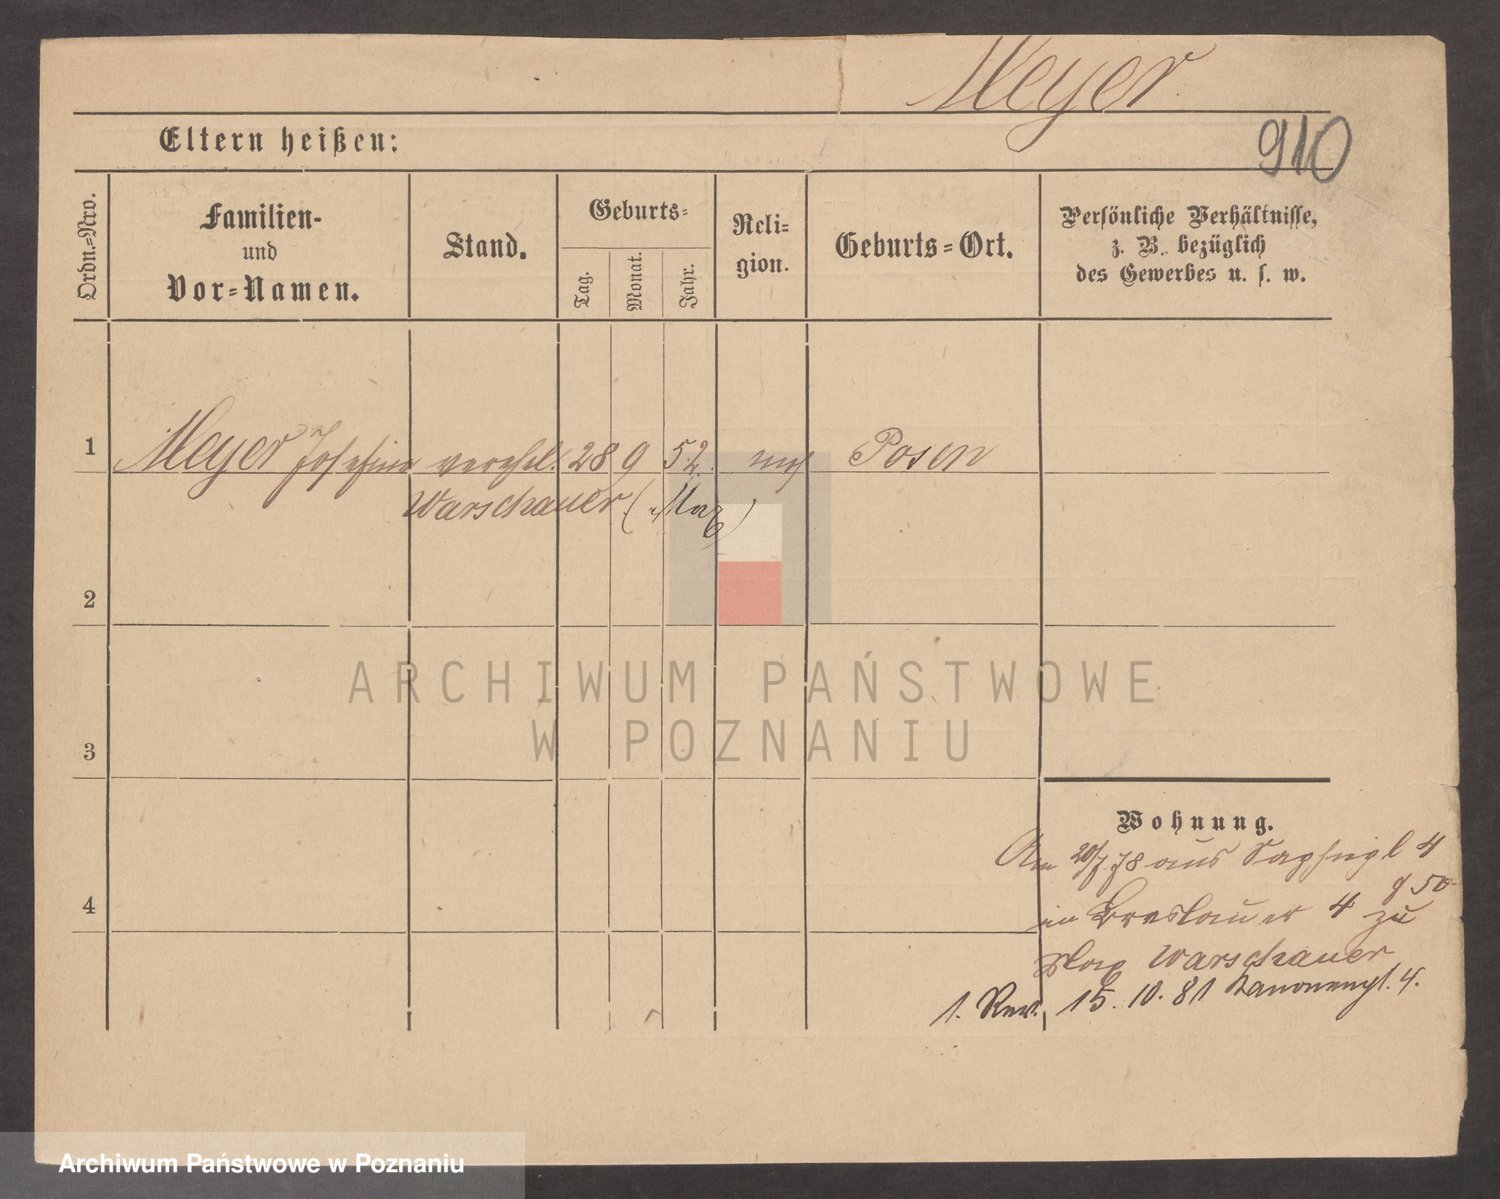 Meyer
910
Eltern heißen:
Ordn.=Nro.
Familien-
und
Vor=Namen.
Stand.
Geburts=
Tag.
Monat.
Jahr.
Reli=
gion.
Geburts=Ort.
Persönliche Verhältnisse,
z. B. bezüglich
des Gewerbes u. s. w.
1
Meyer Josefine verehel. 28 9 52. mos Posen
Warschauer (Max)
2
3
4
Wohnung.
Am 20/7 78 aus 4
in Breslauer 4 zu
Max Warschauer
1. Rev. 15. 10. 81 Kanonenpl. 4.
ARCHIWUM PAŃSTWOWE
W POZNANIU
Archiwum Państwowe w Poznaniu